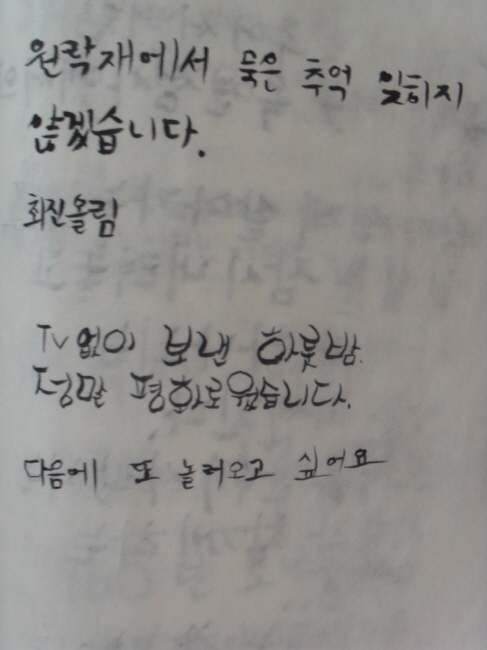 원락재에서 묵은 추억 잊히지
않겠습니다.
최진올림
TV 없이 보낸 하룻밤.
정말 평화로웠습니다.
다음에 또 놀러오고 싶어요